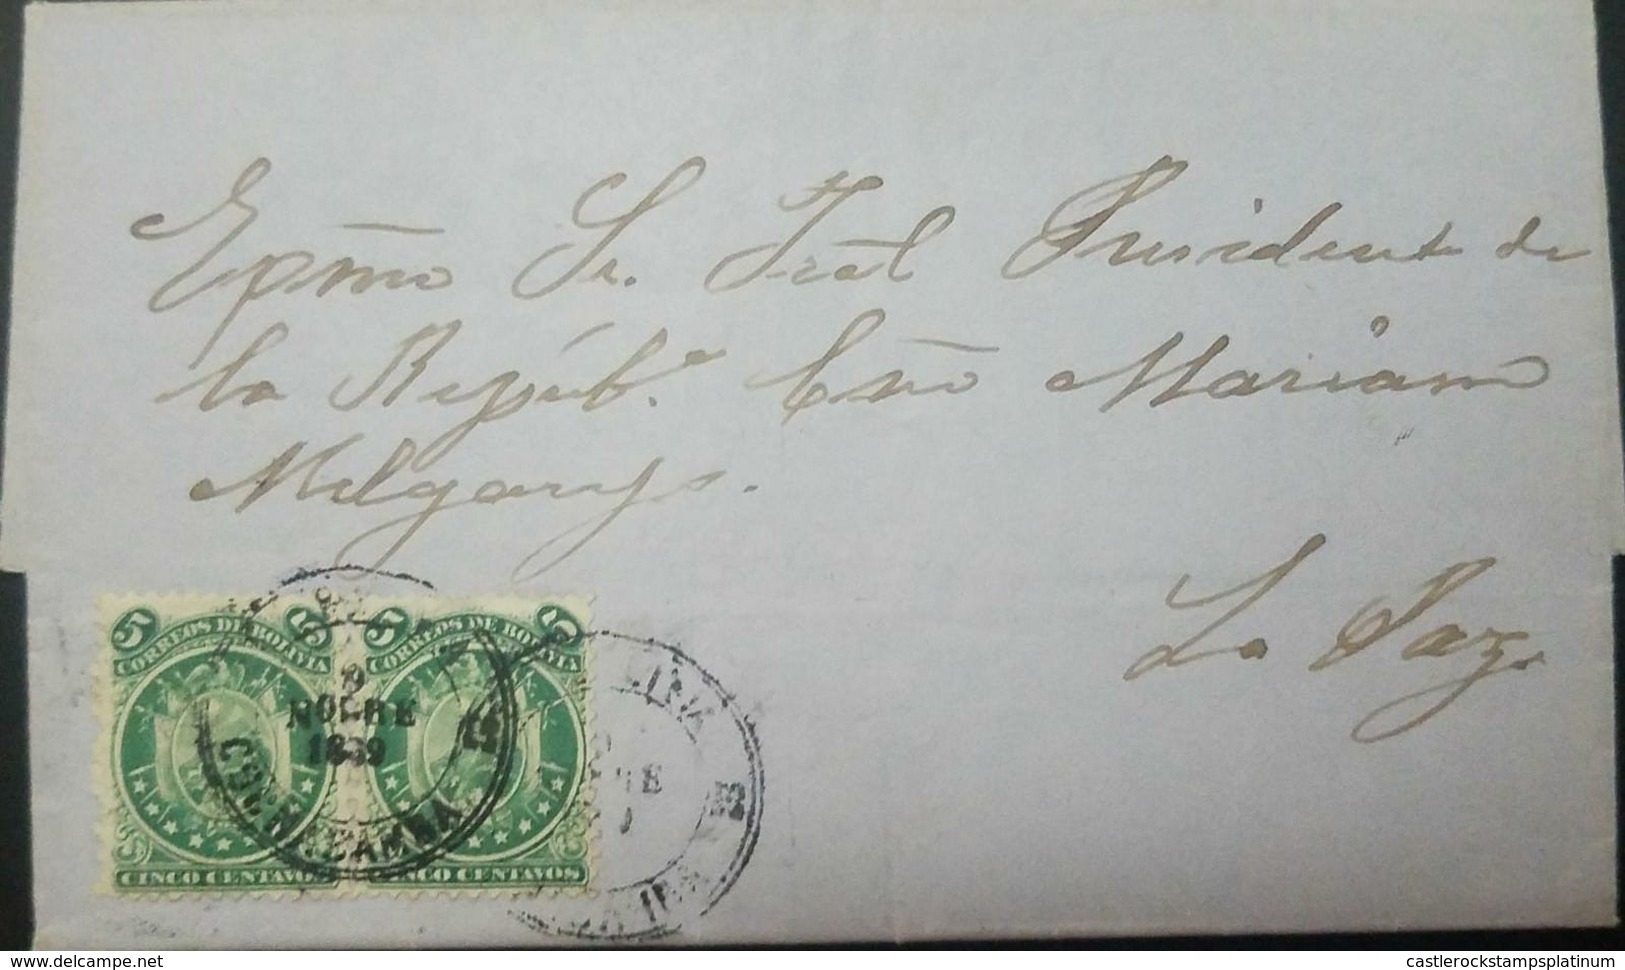 Exmo Sr. Gral President de
la Repúb.ª Cno Mariano
Melgarejo.
La Paz
5 5 5 5
CORREOS DE BOLIVIA CORREOS DE BOLIVIA
9
NOBRE
1869
COCHABAMBA
CINCO CENTAVOS CINCO CENTAVOS
www.delcampe.net
castlerockstampsplatinum